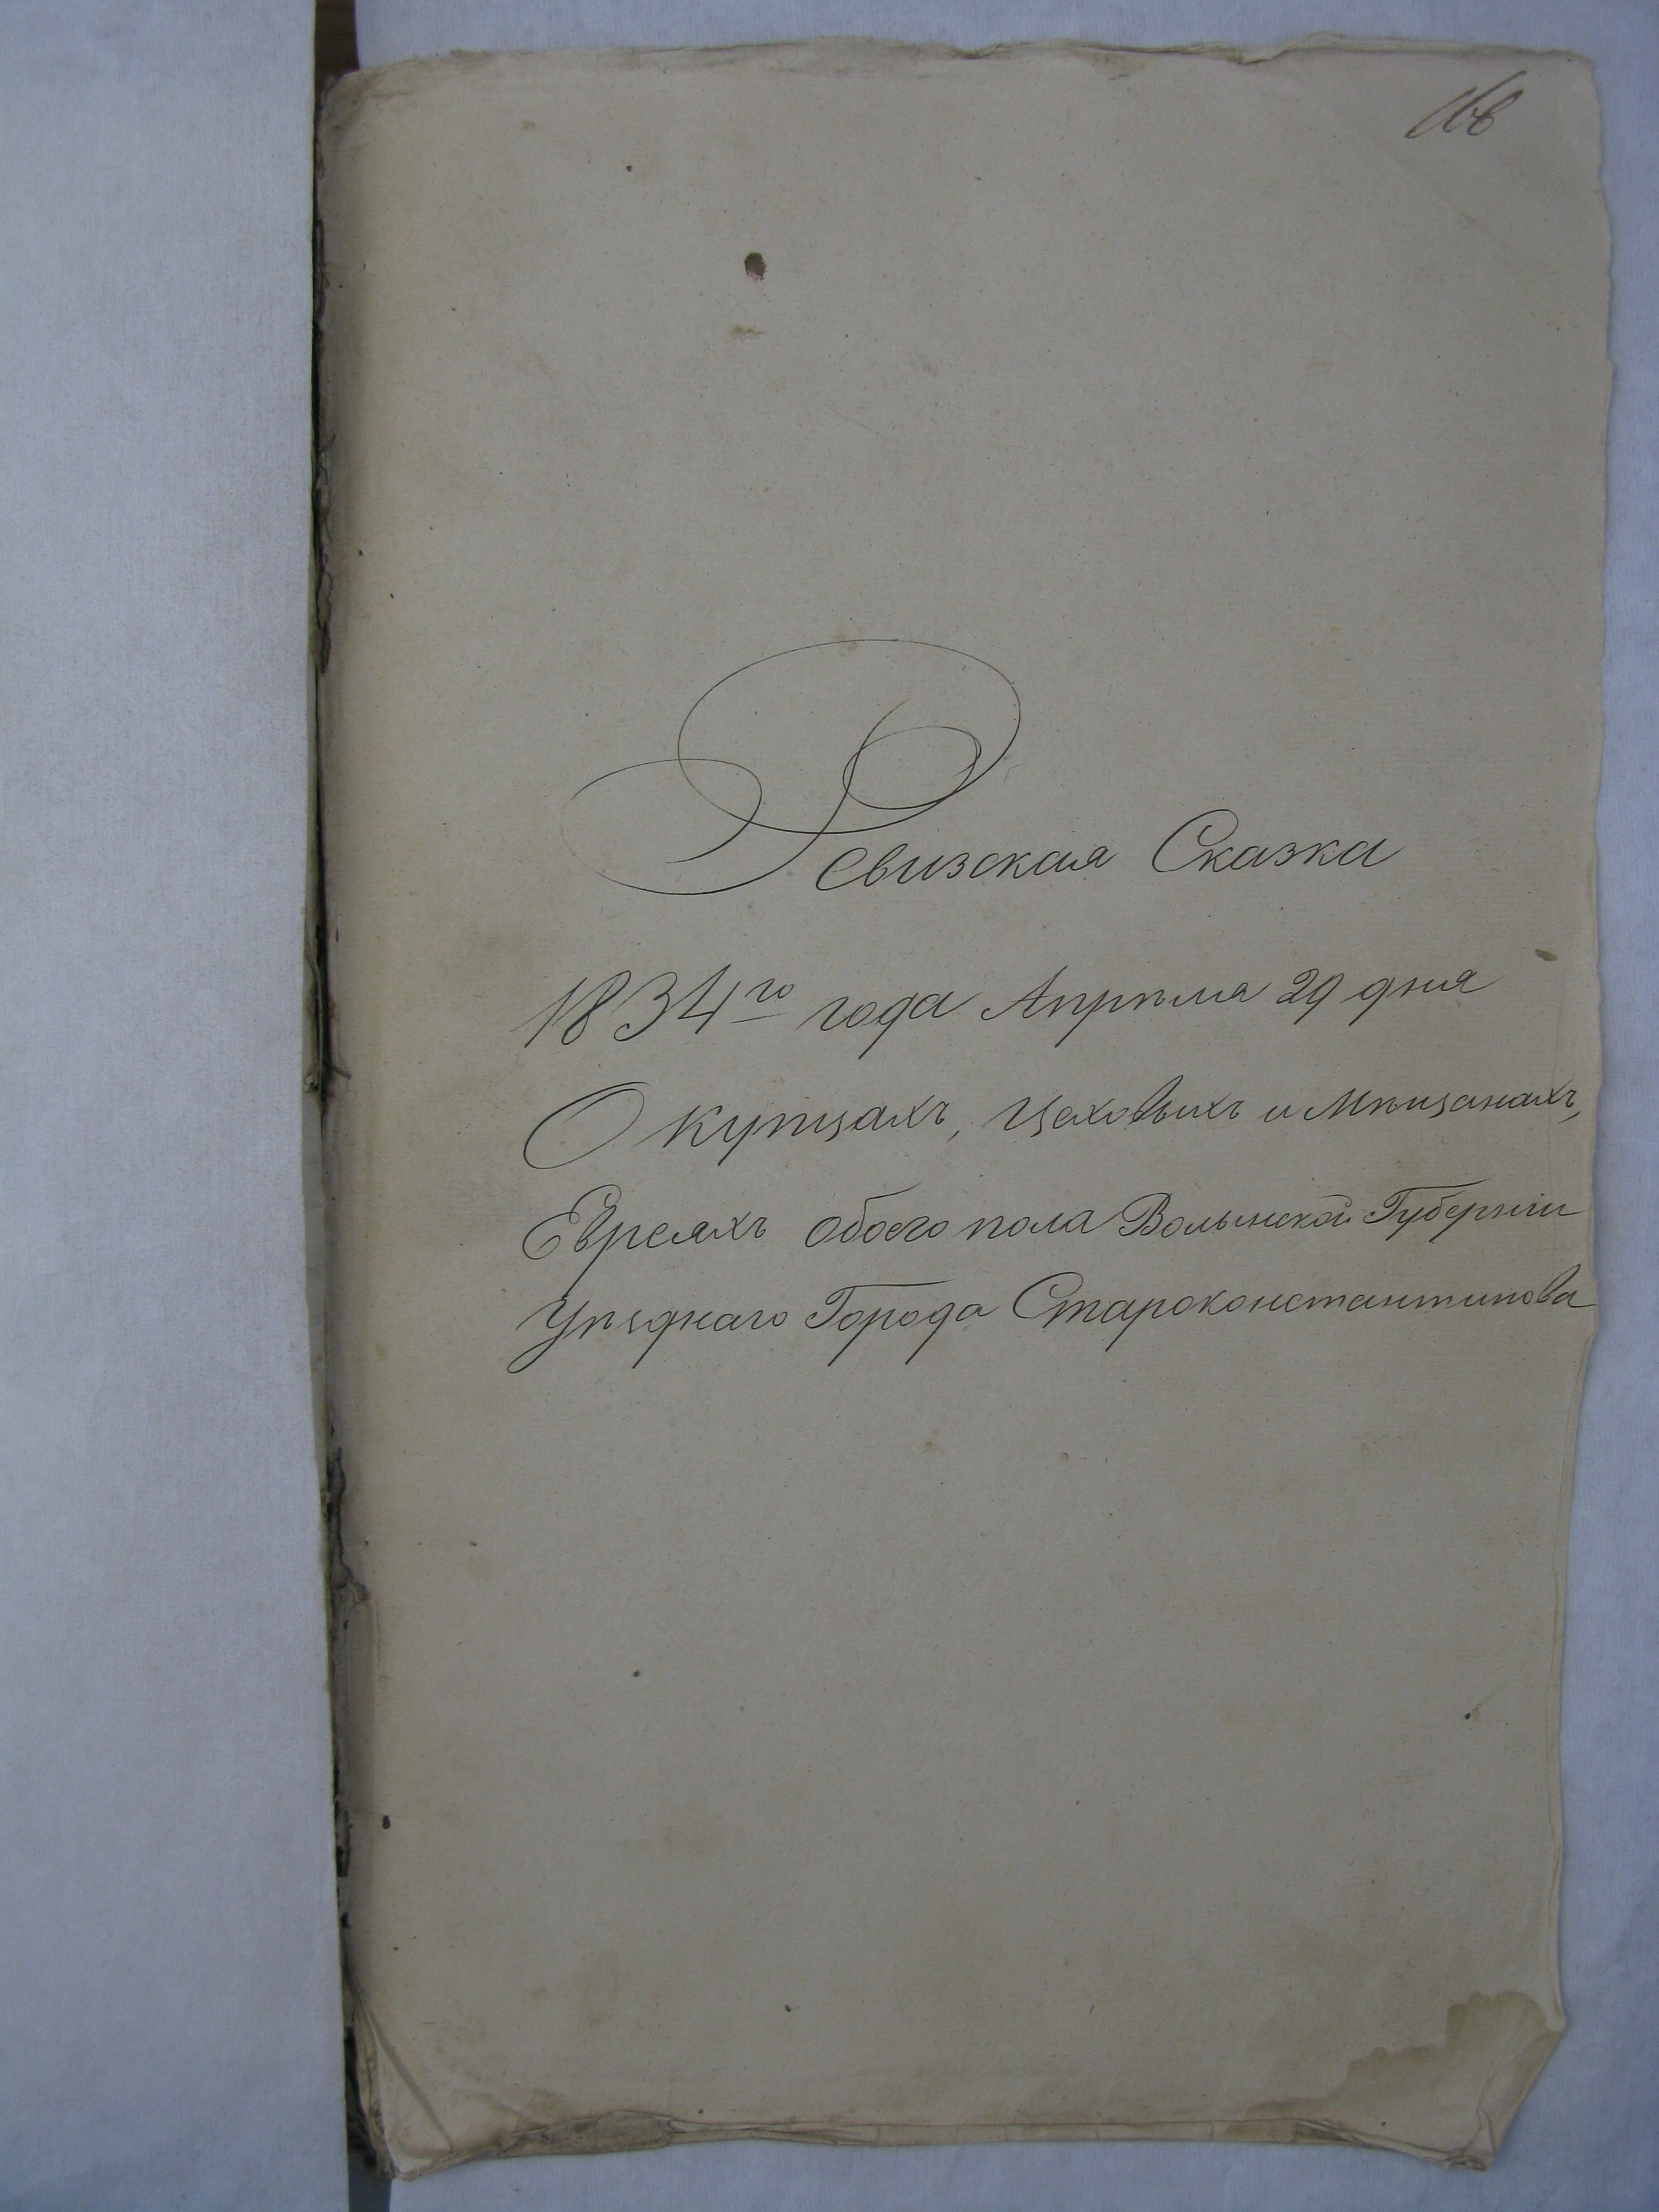 166
Ревизская Сказка
1834го года Апрѣля 29 дня
О купцахъ, Цеховыхъ и Мѣщанахъ,
Евреяхъ обоего пола Волынской Губерніи
Уѣзднаго Города Староконстантинова